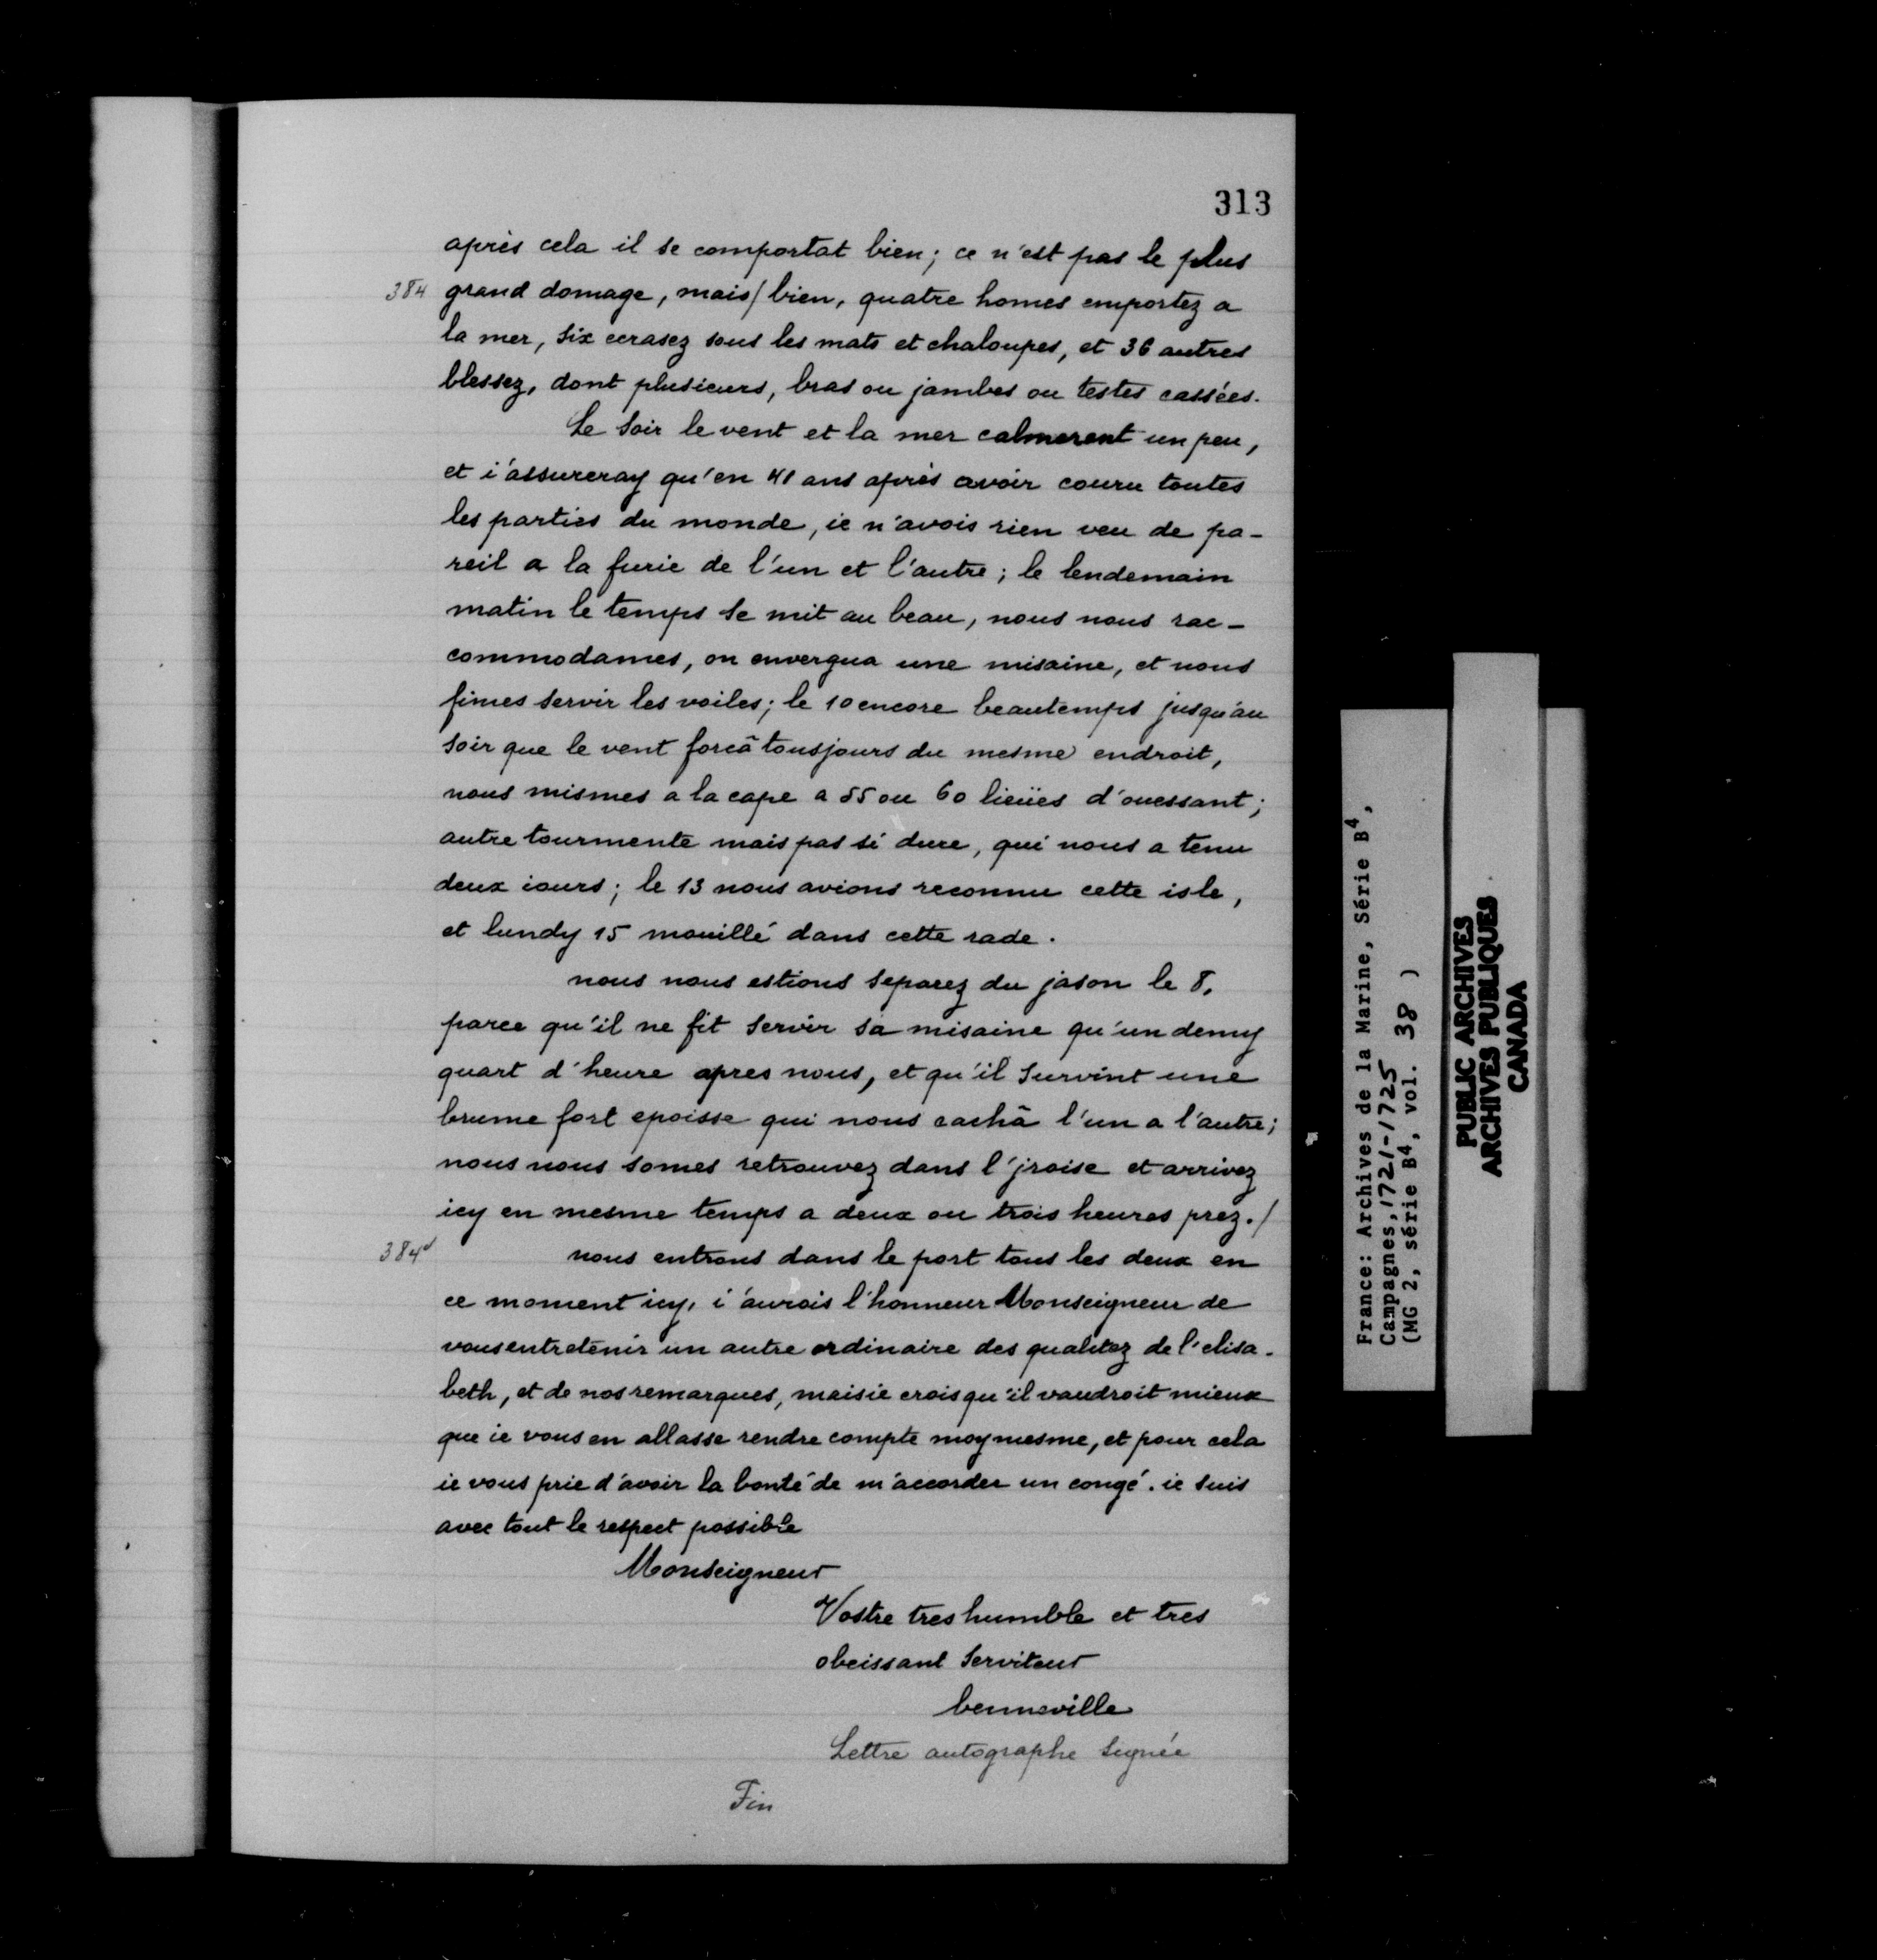 313
après cela il se comportat bien; ce n'est pas le plus
384 grand domage, mais/bien, quatre homes emportez a
la mer, six ecrasez sous les mats et chaloupes, et 36 autres
blessez, dont plusieurs, bras ou jambes ou testes cassées.
Le soir le vent et la mer calmerent un peu,
et i'assureray qu'en 41 ans après avoir couru toutes
les parties du monde, ie n'avois rien veu de pa-
reil a la furie de l'un et l'autre; le lendemain
matin le temps se mit au beau, nous nous rac-
commodames, on envergua une misaine, et nous
fimes servir les voiles; le 10 encore beautemps jusqu'au
soir que le vent forcâ tousjours du mesme endroit,
nous mismes a la cape a 55 ou 60 lieües d'ouessant;
autre tourmente mais pas si dure, qui nous a tenu
deux iours; le 13 nous avions reconnu cette isle,
et lundy 15 mouillé dans cette rade.
nous nous estions separez du jason le 8,
parce qu'il ne fit servir sa misaine qu'un demy
quart d'heure apres nous, et qu'il survint une
brume fort epoisse qui nous cachâ l'un a l'autre;
nous nous somes retrouvez dans l'jroise et arrivez
icy en mesme temps a deux ou trois heures prez./
384v nous entrons dans le port tous les deux en
ce moment icy, i'aurois l'honneur Monseigneur de
vous entretenir un autre ordinaire des qualitez de l'elisa-
beth, et de nos remarques, mais ie crois qu'il vaudroit mieux
que ie vous en allasse rendre compte moy mesme, et pour cela
ie vous prie d'avoir la bonté de m'accorder un congé. ie suis
avec tout le respect possible
Monseigneur
Vostre tres humble et tres
obeissant serviteur
benneville
Lettre autographe signée
Fin
France: Archives de la Marine, Série B4,
Campagnes, 1721-1725
(MG 2, série B4, vol. 38 )
PUBLIC ARCHIVES
ARCHIVES PUBLIQUES
CANADA